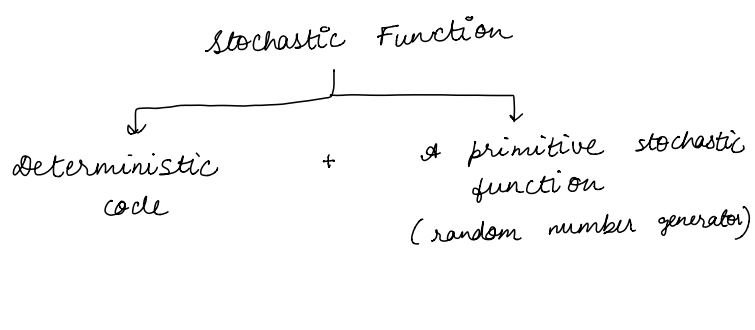 Stochastic Function
Deterministic + A primitive stochastic
code function
(random number generator)